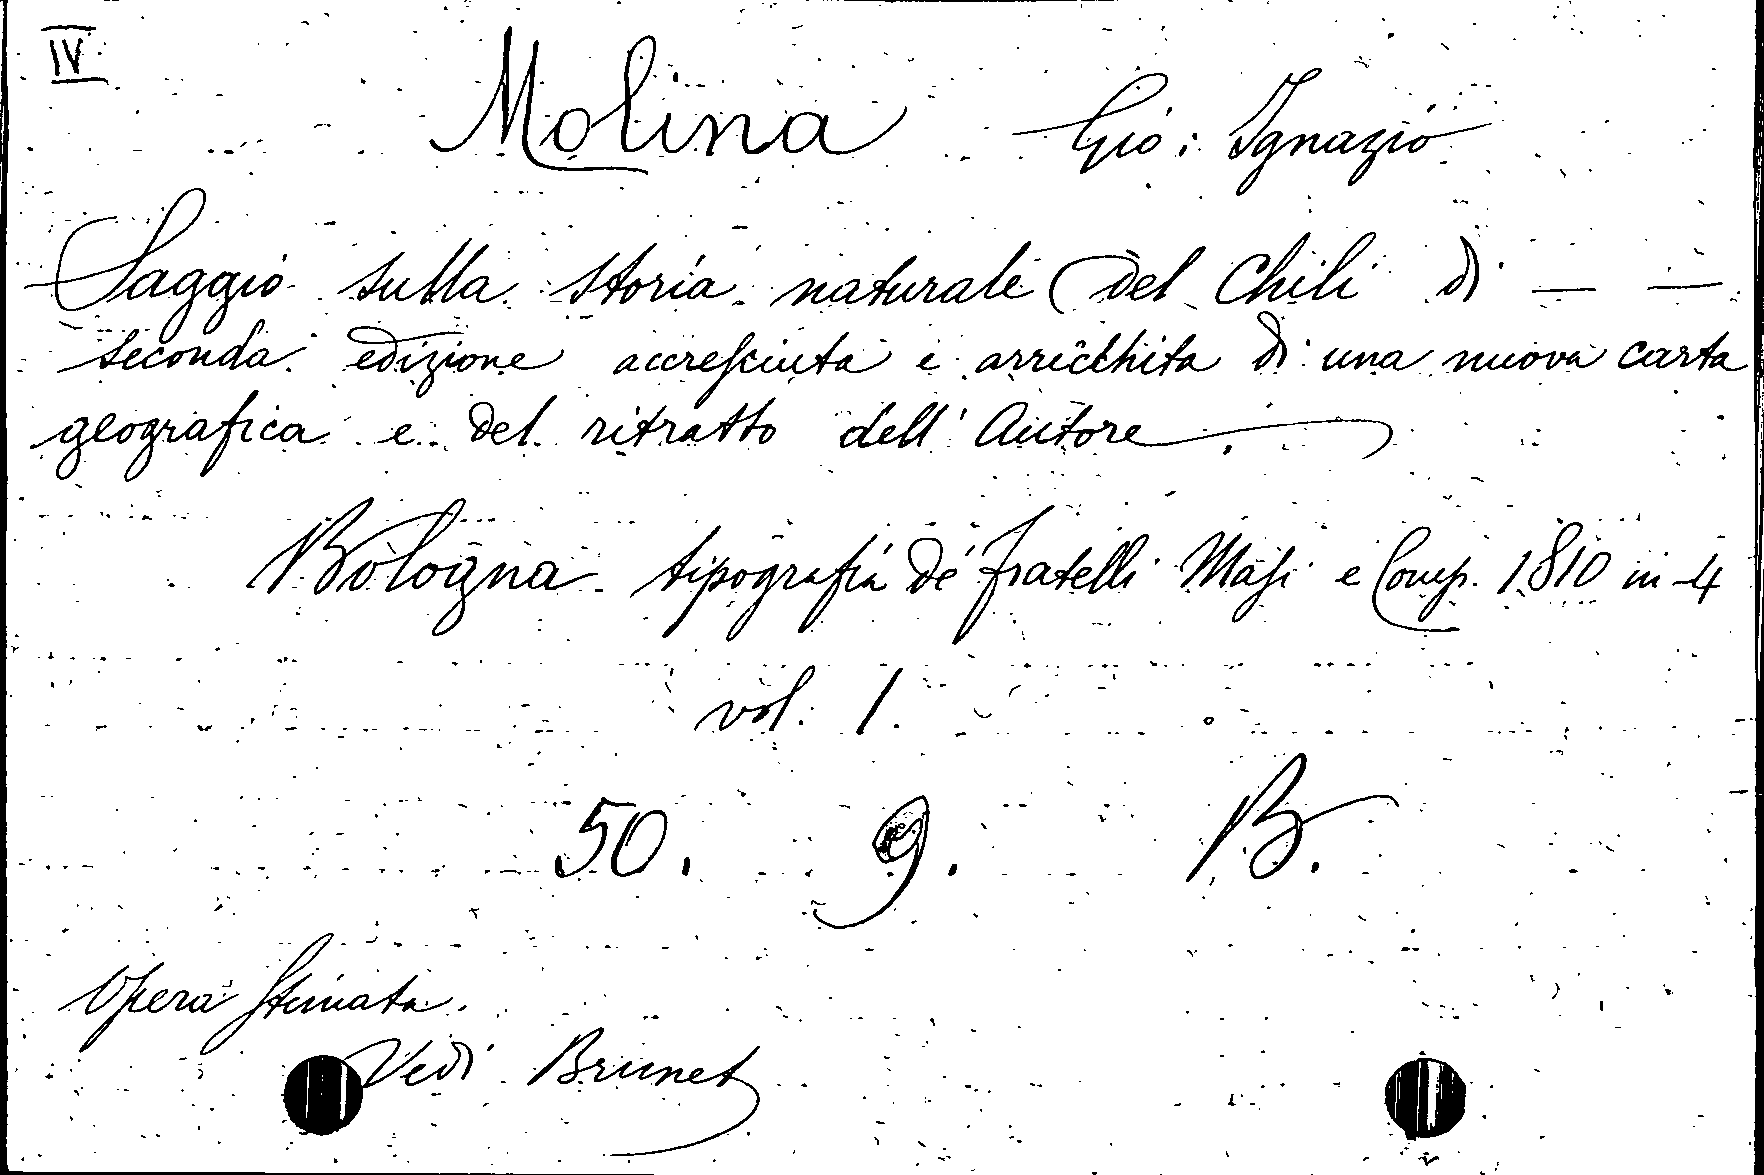 IV
Molina Gio: Ignazio
Saggio sulla storia naturale del Chili di — —
seconda edizione accresciuta e arricchita di una nuova carta
geografica e del ritratto dell'Autore.
Bologna tipografia de' fratelli Masi e Comp. 1810 in-4
vol. 1.
50. 9. B.
Opera stimata.
Vedi Brunet